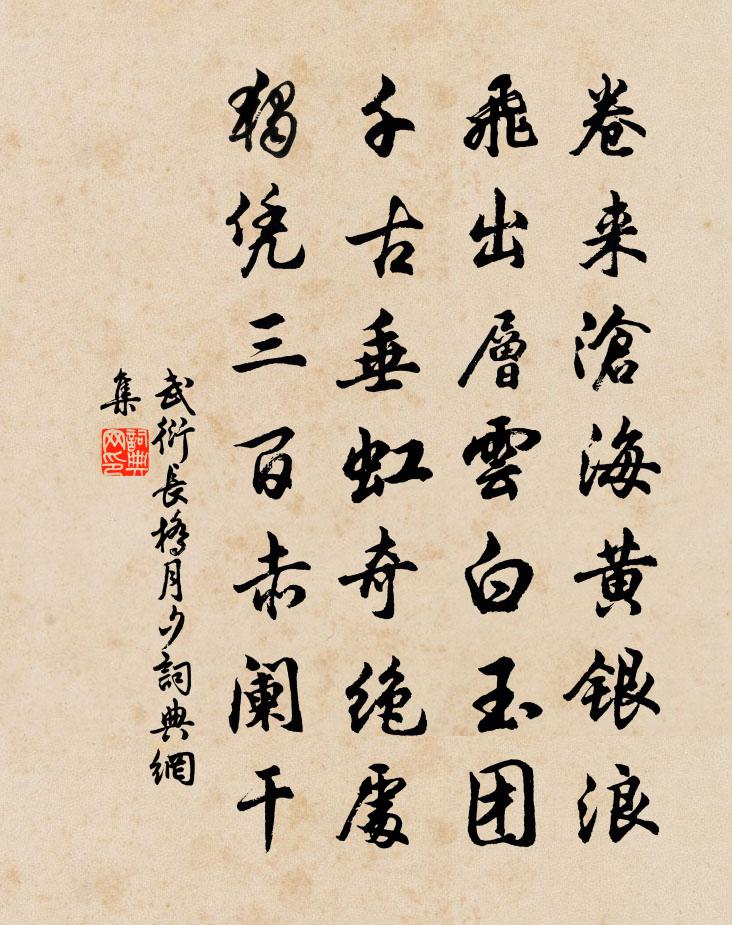 卷来滄海黄銀浪
飛出層雲白玉团
千古垂虹奇绝處
独凭三百赤阑干
武衍長橋月夕詞典網
集
詞典网印